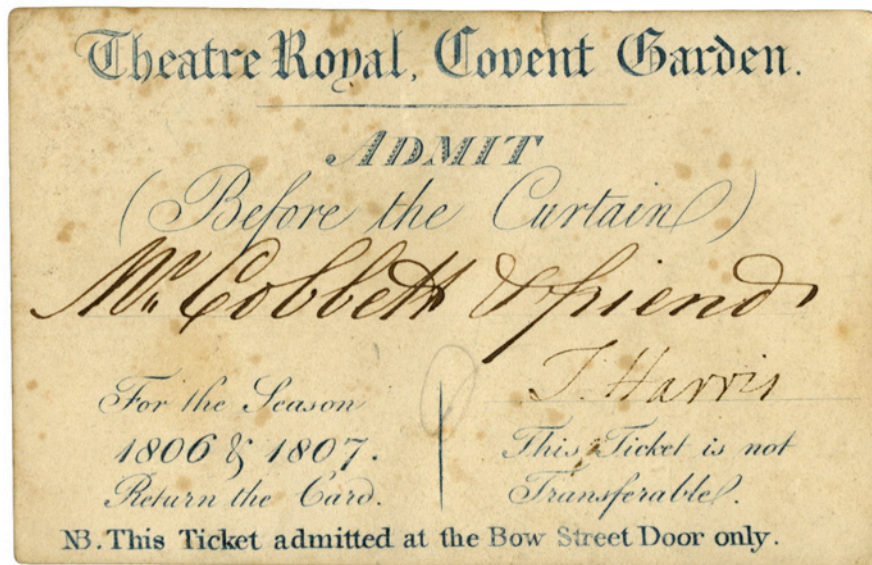 Theatre Royal, Covent Garden.
ADMIT
(Before the Curtain)
Mr. Cobbett & friend
T. Harris
For the Season
1806 & 1807.
Return the Card.
This Ticket is not
Transferable.
NB. This Ticket admitted at the Bow Street Door only.